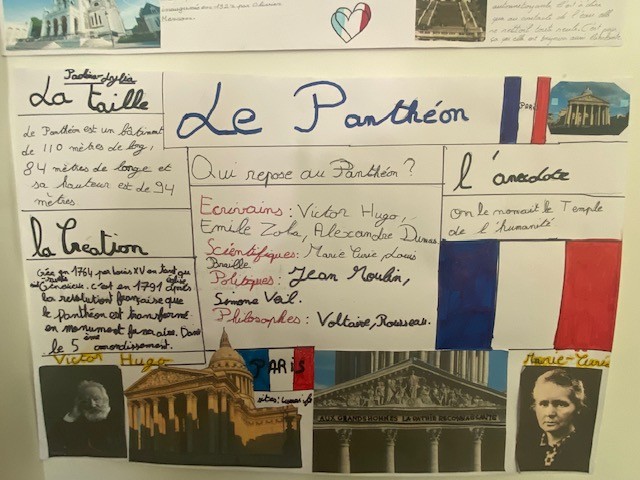 inauguré en 1922 par
Padéra-Lydia
La taille
Le Panthéon est un bâtiment
de 110 mètres de long,
84 mètres de longe et
sa hauteur est de 94
mètres.
Le Panthéon
PARIS
Qui repose au Panthéon ?
Ecrivains : Victor Hugo,
Emile Zola, Alexandre Dumas.
Scientifiques : Marie Curie, Louis
Braille
Politiques : Jean Moulin,
Simone Veil.
Philosophes : Voltaire, Rousseau.
l'anecdote
On le nomait le Temple
de l'humanité
la Création
Crée en 1764 par Louis XV en tant qu'église
Geneviève. c'est en 1791 après
la revolution française que
le Panthéon est transformé
en monument funeraire. Dans
le 5ème arrondissement.
Victor Hugo
PARIS
AUX GRANDS HOMMES LA PATRIE RECONNAISSANTE
Marie-Curie